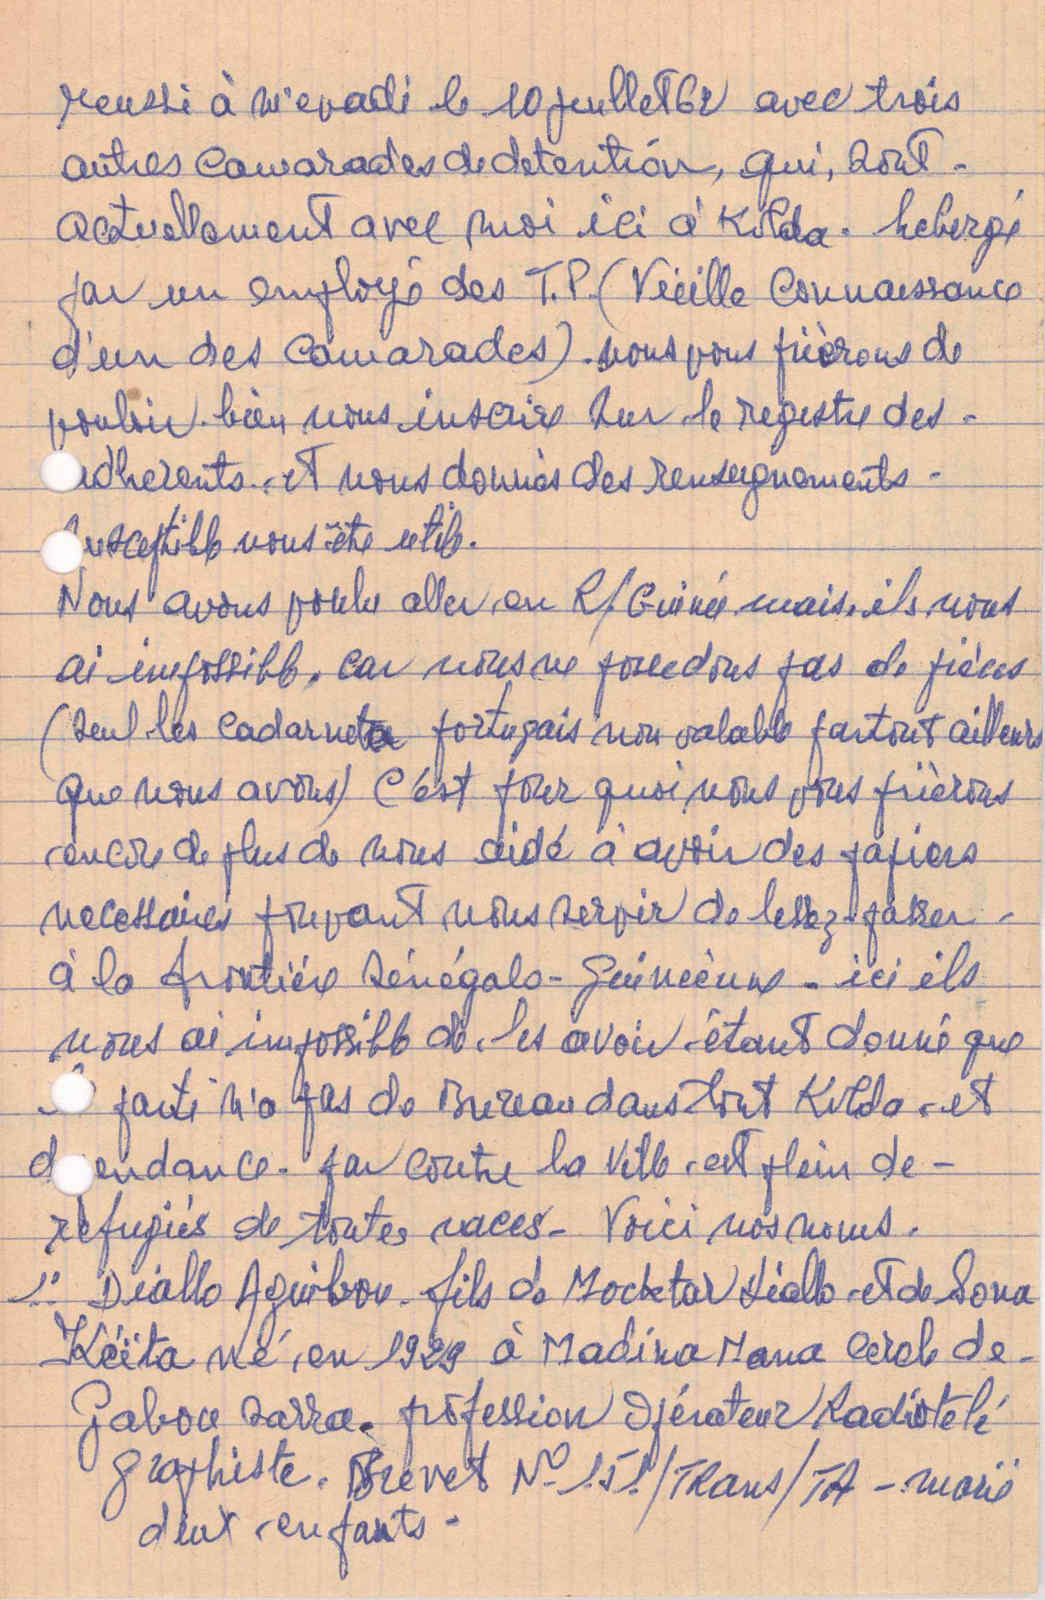 reussi à m'evadi le 10 juillet 62 avec trois
autres camarades de detention, qui, sont -
actuellement avec moi ici à Kolda. hebergé
par un employé des T.P. (Vieille Connaissance
d'un des camarades). nous vous prièrons de
vouloir bien nous inscrire sur le registre des -
adherents. et nous donnès des renseignements -
susceptible nous être utile.
Nous avons voulu aller en R/Guinée mais, ils nous
ai impossible, car nous ne possedons pas de pièces
(seul les cadarneta portugais non valable partout ailleurs
que nous avons) C'est pour quoi nous vous prièrons
encore de plus de nous aidé à avoir des papiers
necessaires pouvant nous servir de lessez-passer -
à la frontière Sénégalo-Guinéènne. ici ils
nous ai impossible de les avoir étant donné que
parti n'a pas de Bureau dans tout Kolda. et
d endance. par contre la ville est plein de -
réfugiés de toutes races - Voici nos noms.
1º: Diallo Aguibou. fils de Mocktar Diallo et de Sona
Kéïta né en 1929 à Madina Mana cercle de -
Gabou Sarra. profession Opérateur Radiotelé
graphiste. Brevet Nº 151/Trans/TA - marié
deux enfants -